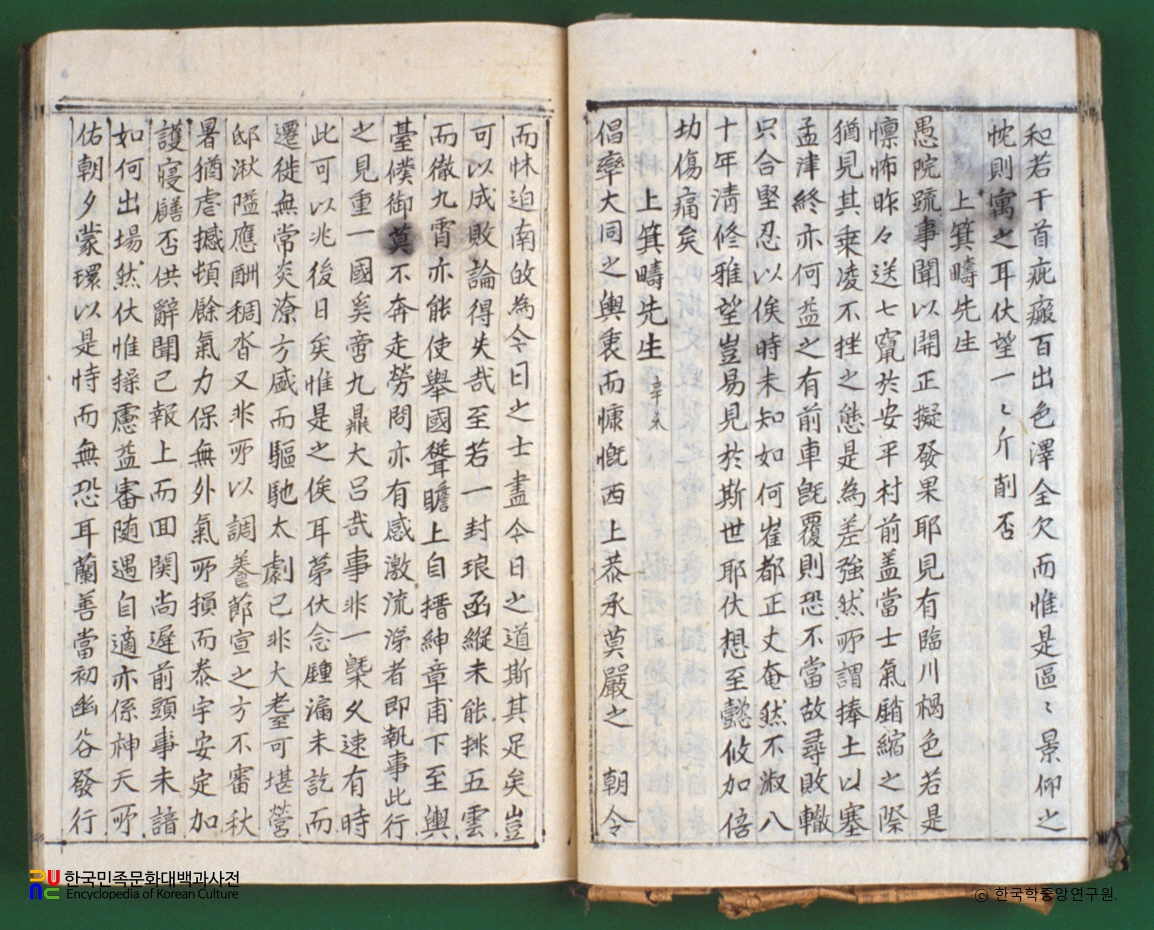 和若干首疵瘢百出色澤全欠而惟是區〻景仰之
忱則寓之耳伏望一〻斤削否
上箕疇先生
愚院疏事聞以開正擬發果耶見有臨川楇色若是
懍怖昨々送七竄於安平村前盖當士氣䐉縮之際
猶見其乘凌不挫之態是為差強然所謂捧土以塞
孟津終亦何益之有前車旣覆則恐不當故尋敗轍
只合堅忍以俟時未知如何崔都正丈奄然不淑八
十年淸修雅望豈易見於斯世耶伏想至懿攸加倍
劫傷痛矣
上箕疇先生 辛未
倡率大同之輿衷而慷慨西上恭承莫嚴之 朝令
而怵迫南啟為今日之士盡今日之道斯其足矣豈
可以成敗論得失哉至若一封琅函縱未能排五雲
而徹九霄亦能使舉國聳瞻上自搢紳章甫下至輿
臺僕御莫不奔走勞問亦有感激流涕者即執事此行
之見重一國奚啻九鼎大呂哉事非一槩久速有時
此可以兆後日矣惟是之俟耳苐伏念腫漏未訖而
遷徙無常炎潦方盛而驅馳太劇已非大耋可堪營
邸湫隘應酬稠沓又非所以調養節宣之方不審秋
暑猶虐撼頓餘氣力保無外氣所損而泰宇安定加
護寢饍否供辭聞己報上而回関尚遲前頭事未諳
如何出場然伏惟操慮益審随遇自適亦係神天所
佑朝夕蒙環以是恃而無恐耳蘭善當初幽谷發行
한국민족문화대백과사전
Encyclopedia of Korean Culture
© 한국학중앙연구원.